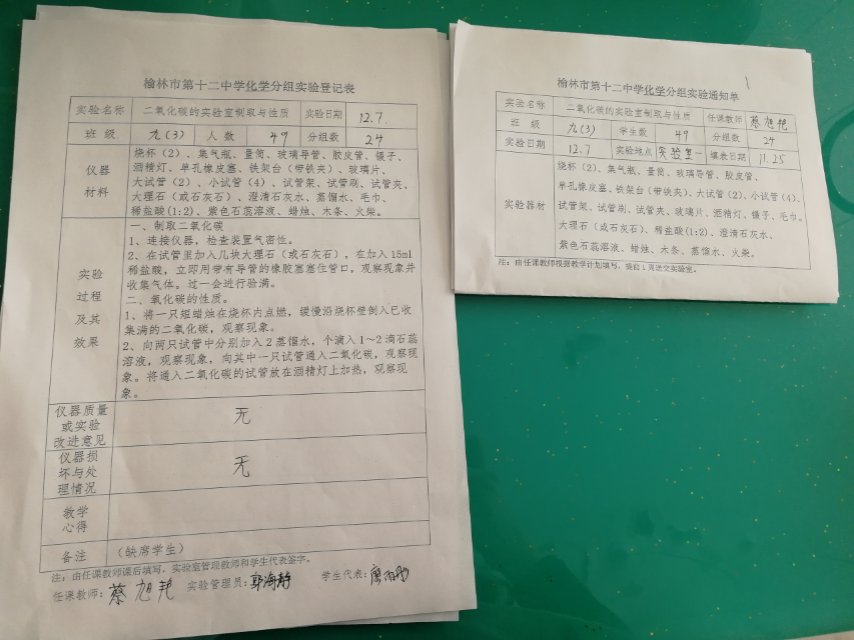 榆林市第十二中学化学分组实验登记表
实验名称 二氧化碳的实验室制取与性质 实验日期 12.7.
班 级 九(3) 人 数 49 分组数 24
仪器材料
烧杯(2)、集气瓶、量筒、玻璃导管、胶皮管、镊子、
酒精灯、单孔橡皮塞、铁架台(带铁夹)、玻璃片、
大试管(2)、小试管(4)、试管架、试管刷、试管夹、
大理石(或石灰石)、澄清石灰水、蒸馏水、毛巾、
稀盐酸(1:2)、紫色石蕊溶液、蜡烛、木条、火柴。
实验过程及其效果
一、制取二氧化碳
1、连接仪器,检查装置气密性。
2、在试管里加入几块大理石(或石灰石),在加入15ml
稀盐酸,立即用带有导管的橡胶塞塞住管口,观察现象并
收集气体。过一会进行验满。
二、氧化碳的性质。
1、将一只短蜡烛在烧杯内点燃,缓慢沿烧杯壁倒入已收
集满的二氧化碳,观察现象。
2、向两只试管中分别加入2蒸馏水,个滴入1~2滴石蕊
溶液,观察现象,向其中一只试管通入二氧化碳,观察现
象。将通入二氧化碳的试管放在酒精灯上加热,观察现
象。
仪器质量或实验改进意见 无
仪器损坏与处理情况 无
教学心得
备注 (缺席学生)
注:由任课教师课后填写,实验室管理教师和学生代表签字。
任课教师: 蔡旭艳 实验管理员: 郭海静 学生代表:
1
榆林市第十二中学化学分组实验通知单
实验名称 二氧化碳的实验室制取与性质 任课教师 蔡旭艳
班 级 九(3) 学生数 49 分组数 24
实验日期 12.7 实验地点 实验室一 填表日期 11.25
实验器材
烧杯(2)、集气瓶、量筒、玻璃导管、胶皮管、
单孔橡皮塞、铁架台(带铁夹)、大试管(2)、小试管(4)、
试管架、试管刷、试管夹、玻璃片、酒精灯、镊子、毛巾。
大理石(或石灰石)、稀盐酸(1:2)、澄清石灰水、
紫色石蕊溶液、蜡烛、木条、蒸馏水、火柴。
注:由任课教师根据教学计划填写,提前1周送交实验室。